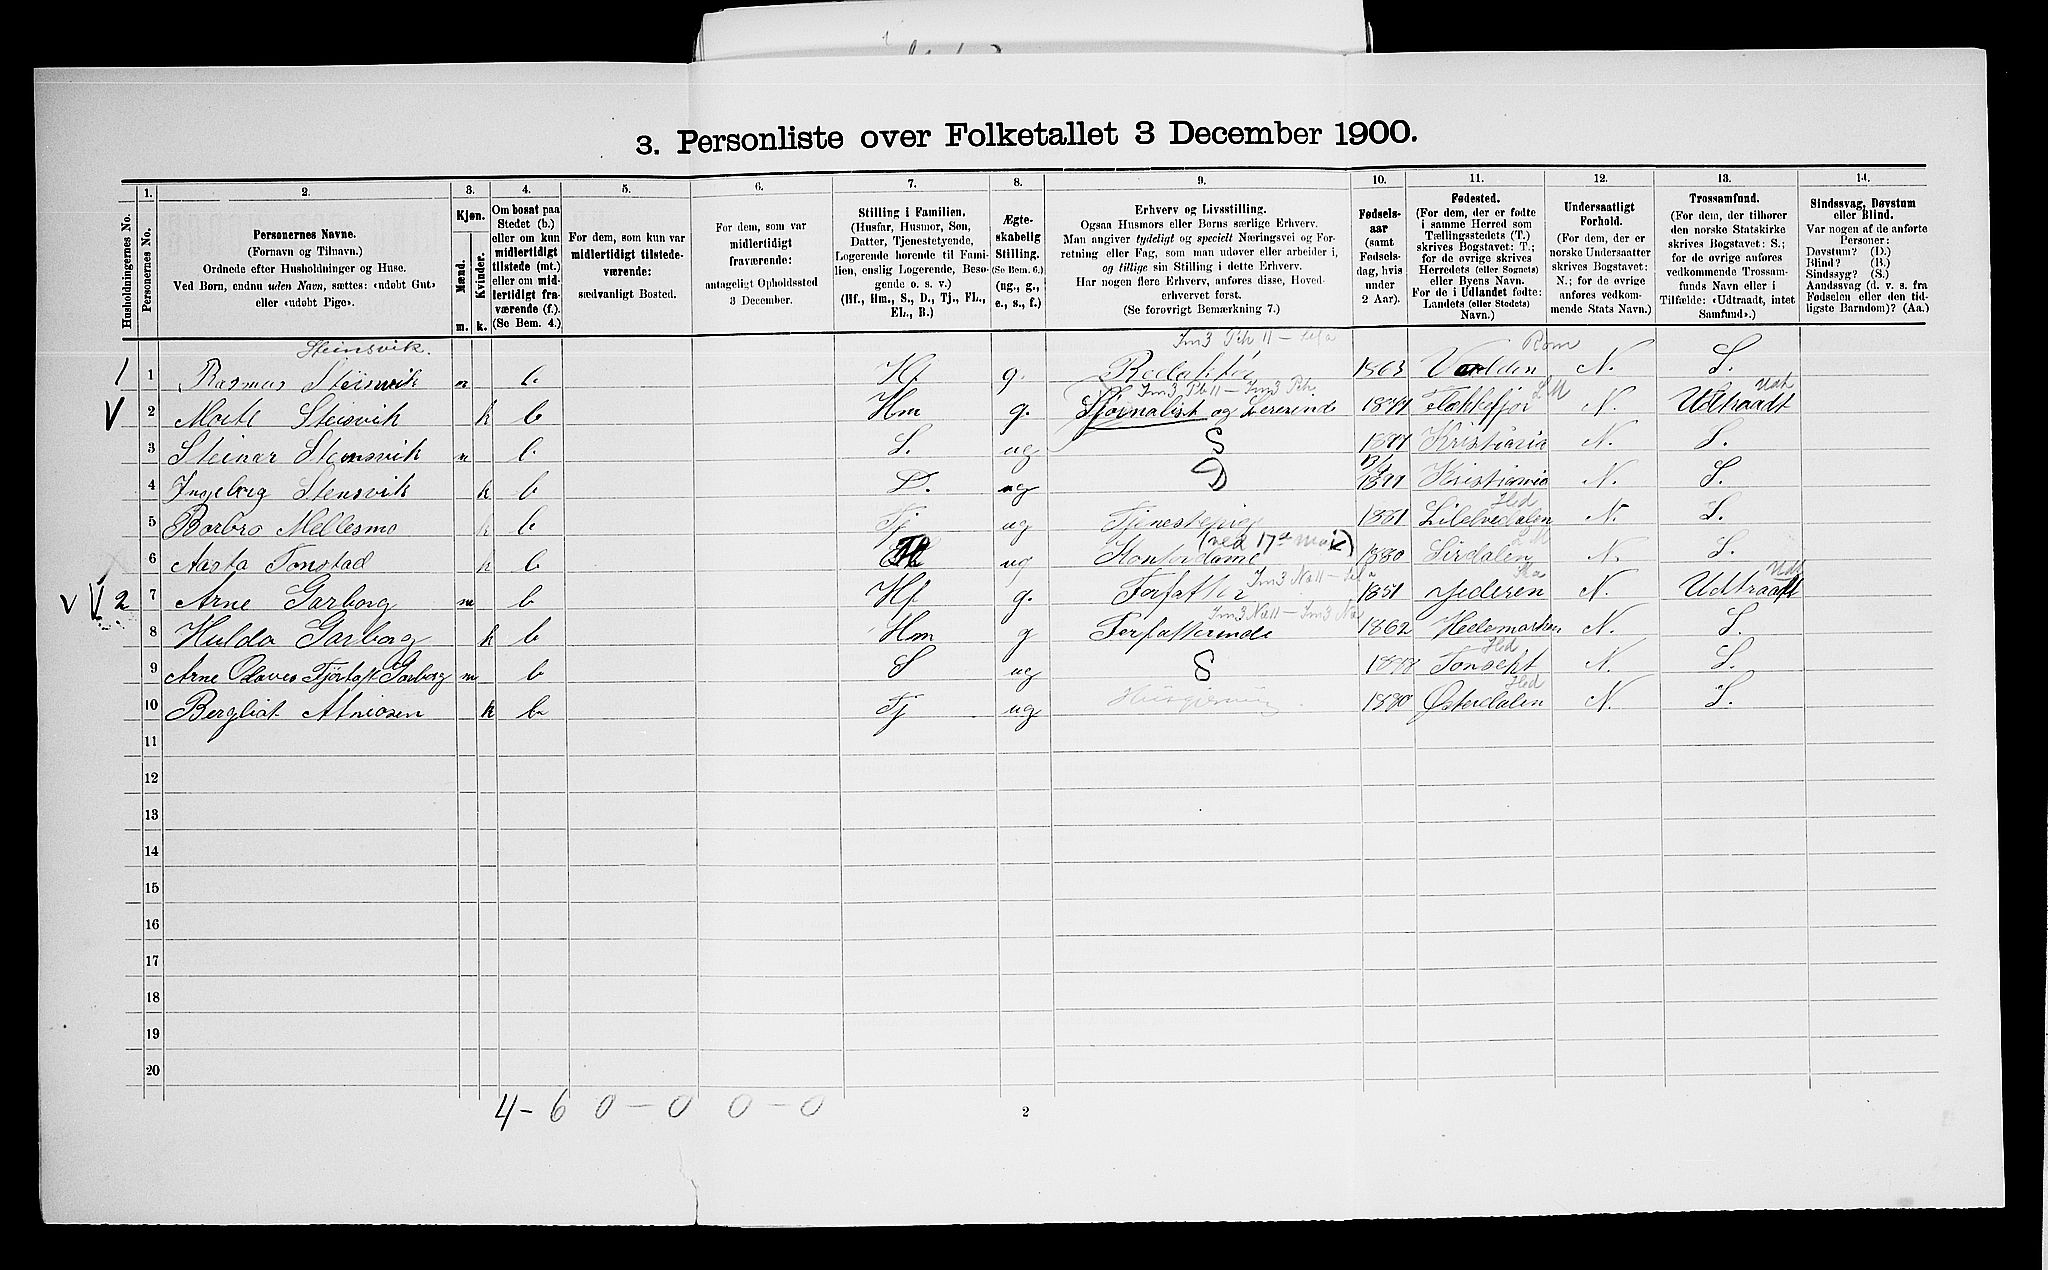 3. Personliste over Folketallet 3 December 1900.
Husholdningernes No.
1. Personernes No.
2. Personernes Navne.
(Fornavn og Tilnavn.)
Ordnede efter Husholdninger og Huse.
Ved Børn, endnu uden Navn, sættes: «udøbt Gut»
eller «udøbt Pige».
3. Kjøn.
Mænd. m.
Kvinder. k.
4. Om bosat paa
Stedet (b.)
eller om kun
midlertidigt
tilstede (mt.)
eller om mid-
lertidigt fra-
værende (f.).
(Se Bem. 4.)
5. For dem, som kun var
midlertidigt tilstede-
værende:
sædvanligt Bosted.
6. For dem, som var
midlertidigt
fraværende:
antageligt Opholdssted
3 December.
7. Stilling i Familien.
(Husfar, Husmor, Søn,
Datter, Tjenestetyende,
Logerende hørende til Fami-
lien, enslig Logerende, Besø-
gende o. s. v.)
(Hf., Hm., S., D., Tj., FL.,
EL., B.)
8. Ægte-
skabelig
Stilling.
(Se Bem. 6.)
(ug., g.,
e., s., f.)
9. Erhverv og Livsstilling.
Ogsaa Husmors eller Børns særlige Erhverv.
Man angiver tydeligt og specielt Næringsvei og For-
retning eller Fag, som man udøver eller arbeider i,
og tillige sin Stilling i dette Erhverv.
Har nogen flere Erhverv, anføres disse, Hoved-
erhvervet først.
(Se forøvrigt Bemærkning 7.)
10. Fødsels-
aar
(samt
Fødsels-
dag, hvis
under
2 Aar).
11. Fødested.
(For dem, der er fødte
i samme Herred som
Tællingsstedets (T.)
skrives Bogstavet: T.;
for de øvrige skrives
Herredets (eller Sognets)
eller Byens Navn.
For de i Udlandet fødte:
Landets (eller Stedets)
Navn.)
12. Undersaatligt
Forhold.
(For dem, der er
norske Undersaatter
skrives Bogstavet:
N.; for de øvrige
anføres vedkom-
mende Stats Navn.)
13. Trossamfund.
(For dem, der tilhører
den norske Statskirke
skrives Bogstavet: S.;
for de øvrige anføres
vedkommende Trossam-
funds Navn eller i
Tilfælde: «Udtraadt, intet
Samfund».)
14. Sindssvag, Døvstum
eller Blind.
Var nogen af de anførte
Personer:
Døvstum? (D.)
Blind? (B.)
Sindssyg? (S.)
Aandssvag (d. v. s. fra
Fødselen eller den tid-
ligste Barndom)? (Aa.)
Steinsvik. Rom
1 1 Rasmus Steinsvik m b. Hf g. Redaktør 1863 N. S.
L M Udt
V 2 Steisvik k b Hm g. og N. Udtraadt
3 Steinar Steinsvik m b. S. ug S Kristiania N. S.
4 Ingeborg Stensvik k b D. ug D Kristiania N. S.
Hed
5 Barbro Mellesmo k b Tj ug Tjenestepige 1881 N. S.
(ved 17de mai)
6 Aasta Tonstad k b ug Kontordame 1880 Sirdalen N. S.
Udt
V V 2 7 Arne Garborg m b Hf g. Forfatter 1851 Jederen N. Udtraadt
8 Hulda Garborg k b Hm g Forfatterinde 1862 Hedemarken N. S.
Hed
9 Arne Olaves Fjørtoft Garborg m b S ug S Tonseht N. S.
Hed
10 Bergliot k b Tj ug Husgjerning 1880 Østerdalen N. S.
11
12
13
14
15
16
17
18
19
20
4 - 6 0 - 0 0 - 0
2